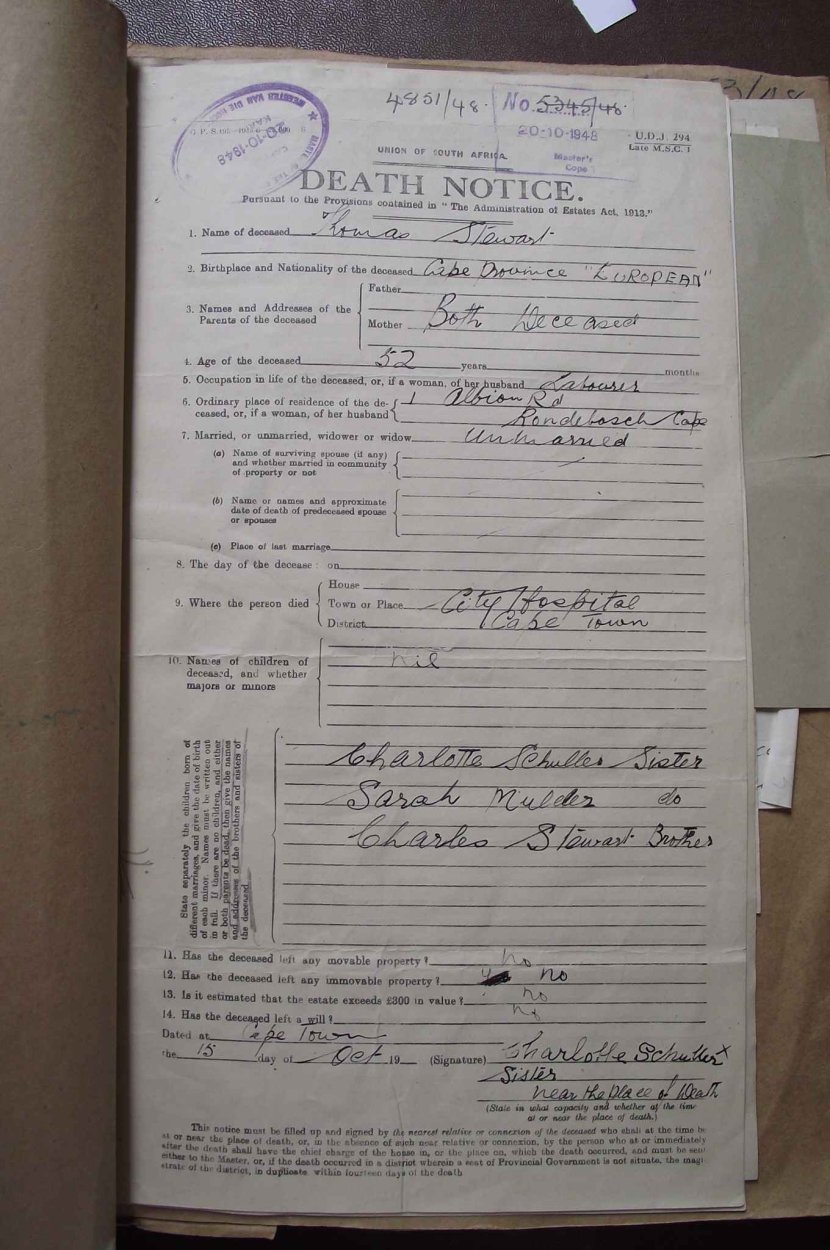 4851/48.
No. 5345/48
20-10-1948
Master's
Cape
U.D.J. 294
Late M.S.C. 1
20-10-1948
UNION OF SOUTH AFRICA.
DEATH NOTICE.
Pursuant to the Provisions contained in "The Administration of Estates Act, 1913."
1. Name of deceased Thomas Stewart
2. Birthplace and Nationality of the deceased Cape Province "EUROPEAN"
3. Names and Addresses of the Parents of the deceased
Father
Mother Both Deceased
4. Age of the deceased 52 years months
5. Occupation in life of the deceased, or, if a woman, of her husband Labourer
6. Ordinary place of residence of the de- 1 Albion Rd
ceased, or, if a woman, of her husband Rondebosch Cape
7. Married, or unmarried, widower or widow Unmarried
(a) Name of surviving spouse (if any)
and whether married in community
of property or not
(b) Name or names and approximate
date of death of predeceased spouse
or spouses
(c) Place of last marriage
8. The day of the decease: on
9. Where the person died
House
Town or Place City Hospital
District Cape Town
10. Names of children of
deceased, and whether
majors or minors
nil
State separately the children born of
different marriages, and give the date of birth
of each minor. Names must be written out
in full. If there are no children, and either
or both parents be dead, then give the names
and addresses of the brothers and sisters of
the deceased
Charlotte Schuller Sister
Sarah Mulder do
Charles Stewart Brother
11. Has the deceased left any movable property? no
12. Has the deceased left any immovable property? no
13. Is it estimated that the estate exceeds £300 in value? no
14. Has the deceased left a will? no
Dated at Cape Town
the 15 day of Oct 19 (Signature) Charlotte Schuller x
Sister
near the place of Death
(State in what capacity and whether at the time
at or near the place of death.)
This notice must be filled up and signed by the nearest relative or connexion of the deceased who shall at the time be
at or near the place of death, or, in the absence of such near relative or connexion, by the person who at or immediately
after the death shall have the chief charge of the house in, or the place on, which the death occurred, and must be sent
either to the Master, or, if the death occurred in a district wherein a seat of Provincial Government is not situate, the magi
strate of the district, in duplicate within fourteen days of the death